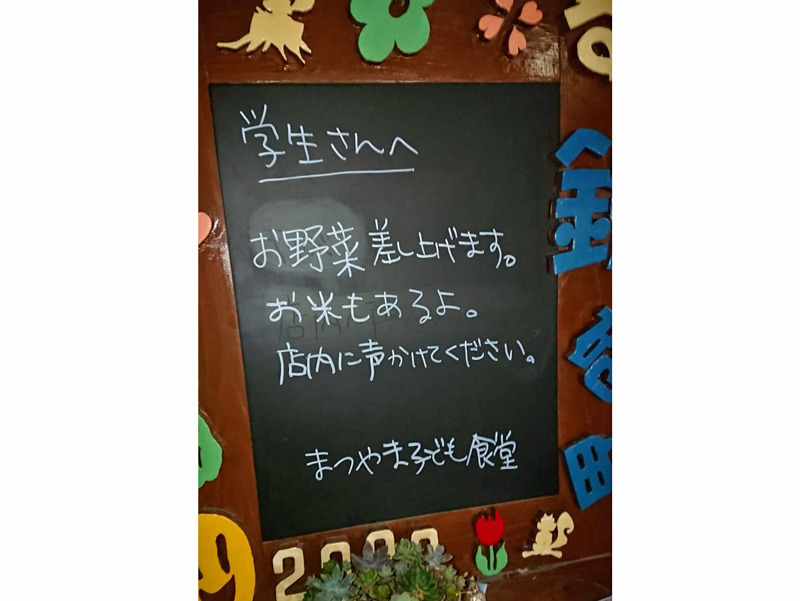 学生さんへ
お野菜差し上げます。
お米もあるよ。
店内に声かけてください。
まつやま子ども食堂
銀
町